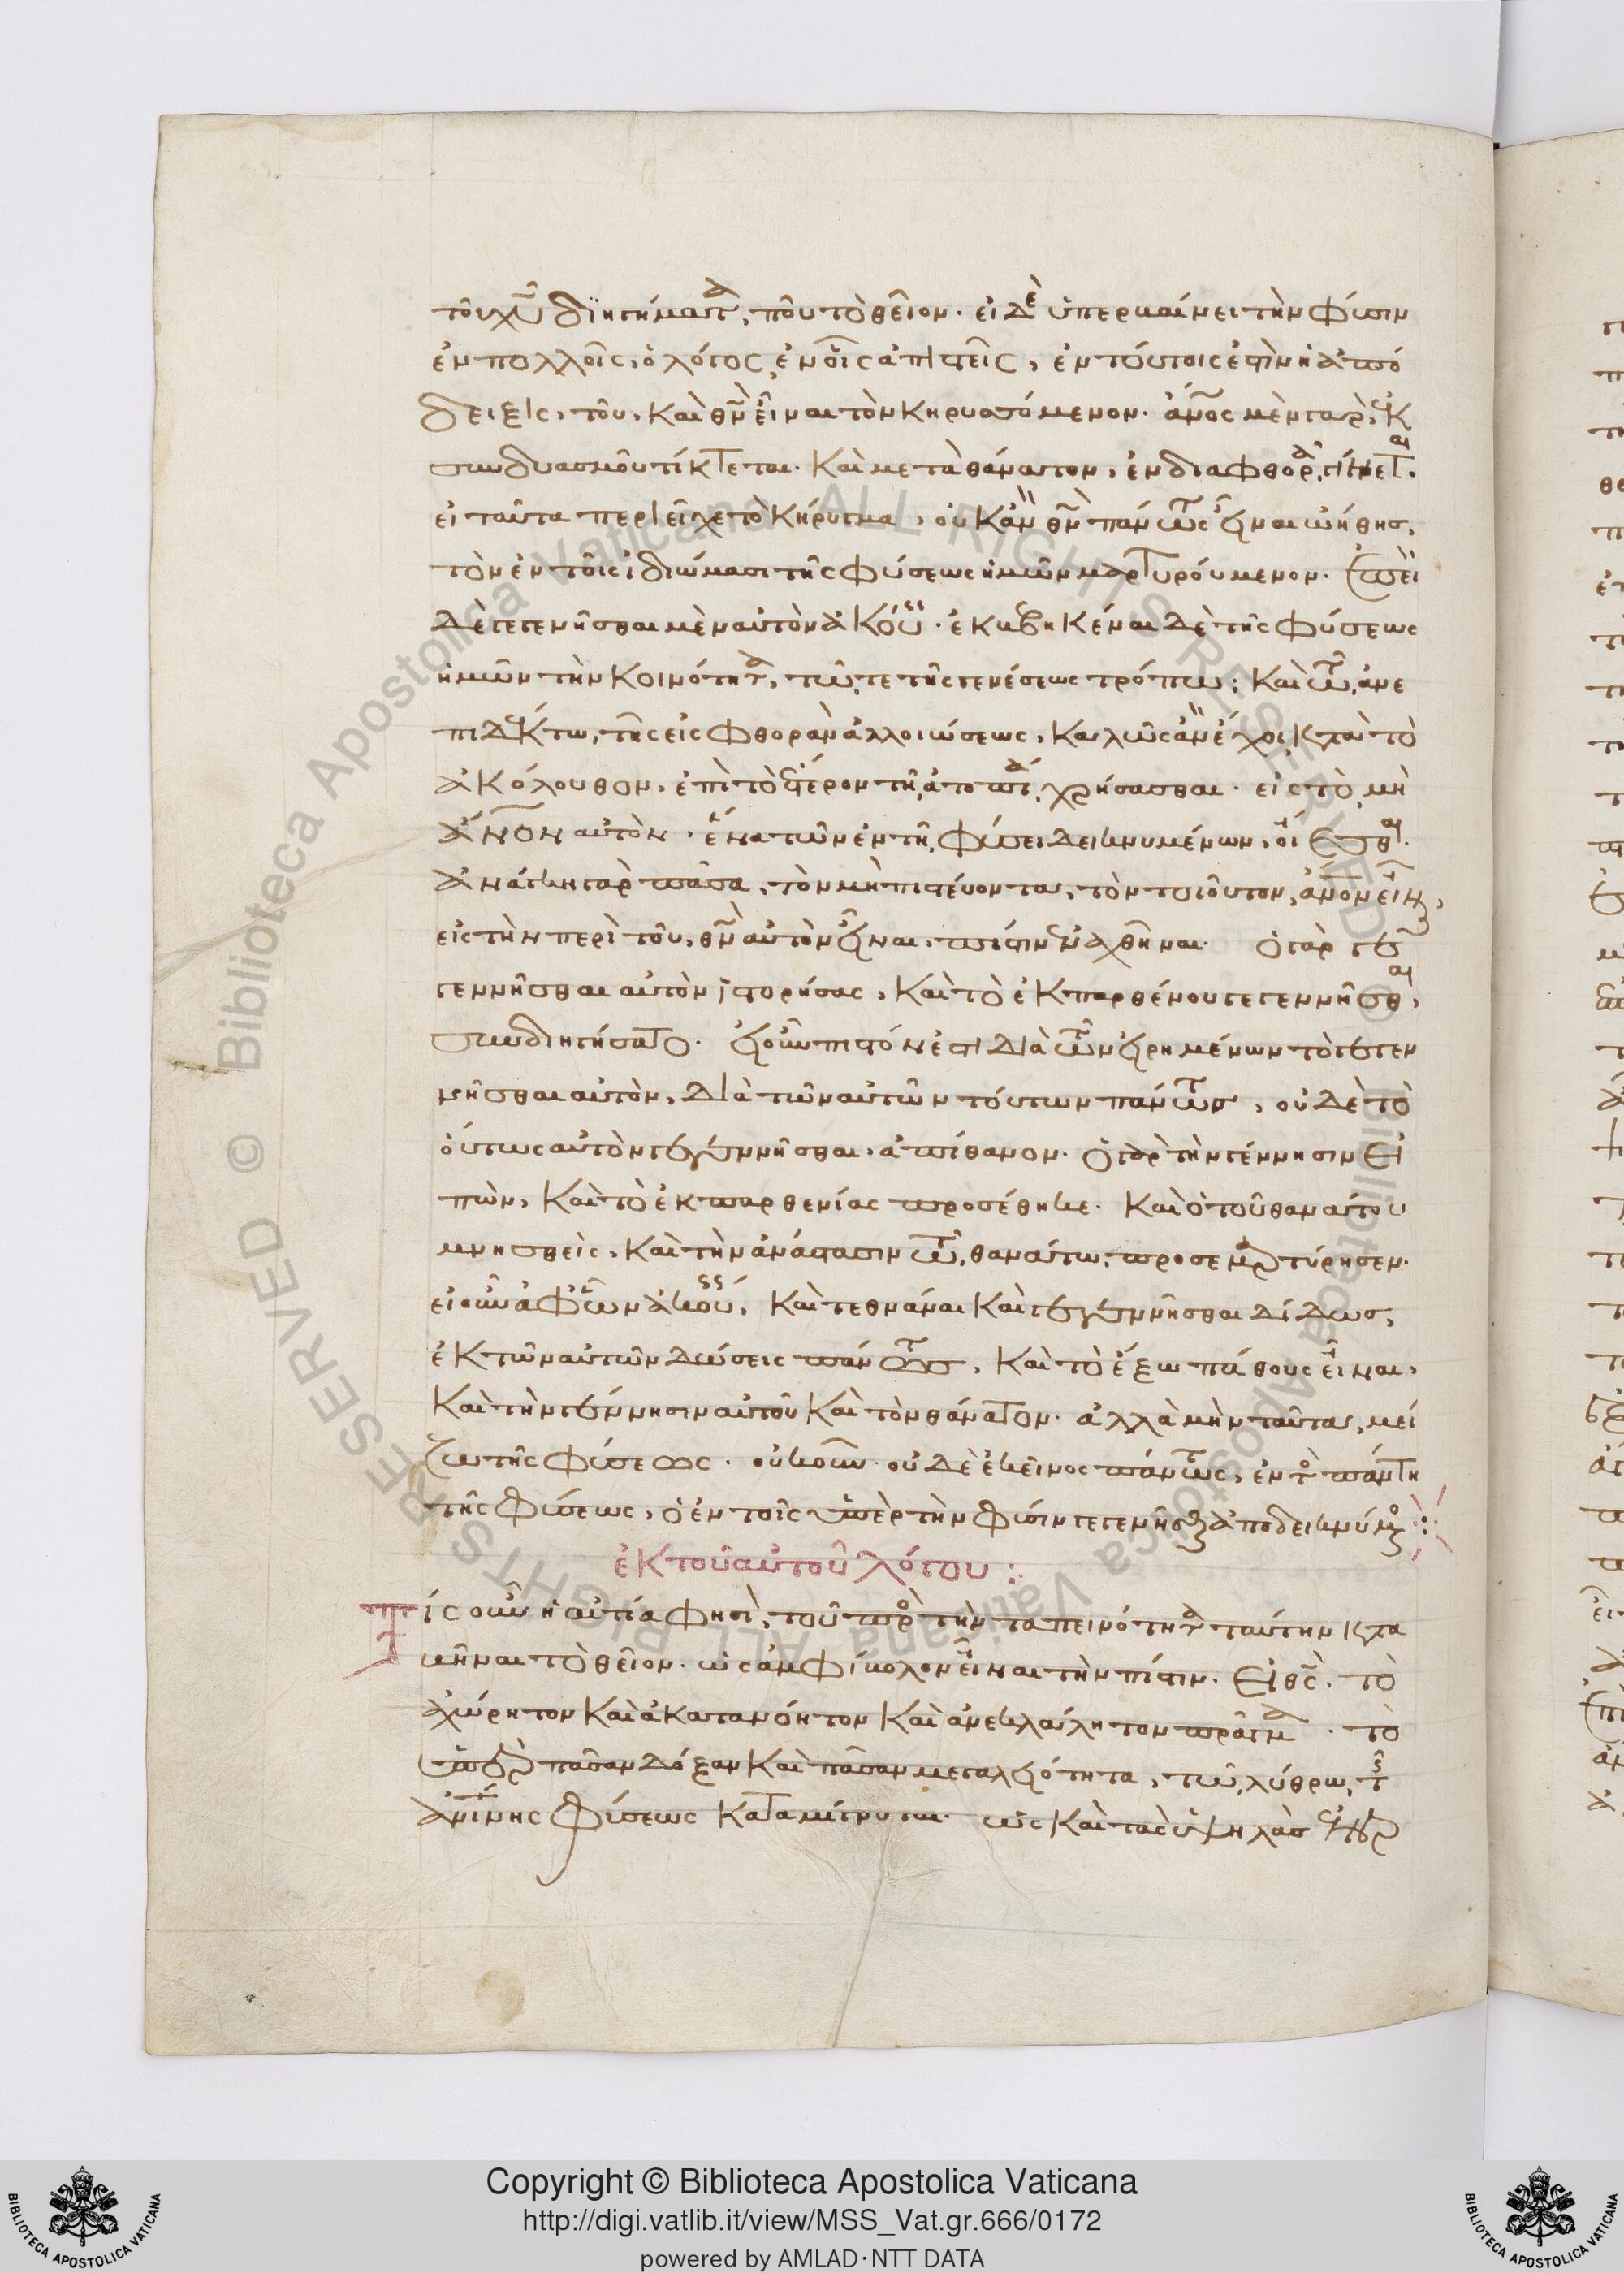 τοῦ χῦ διηγήματα, ποῦ τὸ θεῖον. εἰ δὲ ὑπερβαίνει τὴν φύσιν
ἐν πολλοῖς ὁ λόγος, ἐν οἷς ἀπιστεῖς, ἐν τούτοις ἐστὶν ἡ ἀπό
δειξις, τοῦ, καὶ θν εἶναι τὸν κηρυσσόμενον. ἄνος μὲν γαρ, ἐκ
συνδυασμοῦ τίκτεται. καὶ μετὰ θάνατον, ἐν διαφθορᾷ γίνεται.
εἰ ταῦτα περιεῖχε τὸ κήρυγμα, οὐκ ἂν θν πάντως εἶναι ὠήθης,
τὸν ἐν τοῖς ἰδιώμασι τῆς φύσεως ἡμῶν μαρτυρούμενον. ἐπεὶ
δὲ γεγενῆσθαι μὲν αὐτὸν ἀκούεις. ἐκβεβηκέναι δὲ τῆς φύσεως
ἡμῶν τὴν κοινότητα, τῷ τε τῆς γενέσεως τρόπῳ· καὶ τῷ ἀνε
πιδέκτῳ τῆς εἰς φθορὰν ἀλλοιώσεως, καλῶς ἂν ἔχοι κατὰ τὸ
ἀκόλουθον, ἐπὶ τὸ ἕτερον τῇ ἀπιστίᾳ χρήσασθαι. εἰς τὸ μὴ
ἄνον αὐτὸν. ἕνα τῶν ἐν τῇ φύσει δεικνυμένων, οἴεσθαι.
ἀνάγκη γαρ πᾶσα, τὸν μὴ πιστεύοντα, τὸν τοιοῦτον, ἄνον εἶναι,
εἰς τὴν περὶ τοῦ, θν αὐτὸν εἶναι, πίστιν ἐναχθῆναι. ὁ γαρ γε
γεννῆσθαι αὐτὸν ἱστορήσας, καὶ τὸ ἐκ παρθένου γεγεννῆσθαι,
συνδιηγήσατο. εἰ οὖν πιστόν ἐστι διὰ τῶν εἰρημένων τὸ γεγεν
νῆσθαι αὐτὸν, διὰ τῶν αὐτῶν τούτων πάντως, οὐδὲ τὸ
οὕτως αὐτὸν γεγεννῆσθαι, ἀπίθανον. ὁ γαρ τὴν γέννησιν εἰ
πὼν, καὶ τὸ ἐκ παρθενίας προσέθηκε. καὶ ὁ τοῦ θανάτου
μνησθεὶς, καὶ τὴν ἀνάστασιν τῷ θανάτῳ προσεμαρτύρησεν.
εἰ οὖν ἀφ' ὧν ἀκούεις, καὶ τεθνάναι καὶ γεγεννῆσθαι δίδως,
ἐκ τῶν αὐτῶν δώσεις πάντως, καὶ τὸ ἔξω πάθους εἶναι,
καὶ τὴν γέννησιν αὐτοῦ καὶ τὸν θάνατον. ἀλλὰ μὴν ταῦτα, μεί
ζω τῆς φύσεως. οὐκοῦν οὐδὲ ἐκεῖνος πάντως, ἐντὸς πάντη
τῆς φύσεως, ὁ ἐν τοῖς ὑπὲρ τὴν φύσιν γεγενῆσθαι ἀποδεικνύμενος :
ἐκ τοῦ αὐτοῦ λόγου :
Τίς οὖν ἡ αἰτία φησὶ, τοῦ πρὸς τὴν ταπεινότητα ταύτην κατα
βῆναι τὸ θεῖον. ὡς ἀμφίβολον εἶναι τὴν πίστιν. εἰ θς, τὸ
ἀχώρητον καὶ ἀκατανόητον καὶ ἀνεκλάλητον πρᾶγμα. τὸ
ὑπὲρ πᾶσαν δόξαν καὶ πᾶσαν μεγαλειότητα, τῷ λύθρῳ τῆς
ἀνίνης φύσεως καταμίγνυται. ὡς καὶ τὰς ὑψηλὰς ἐνερ